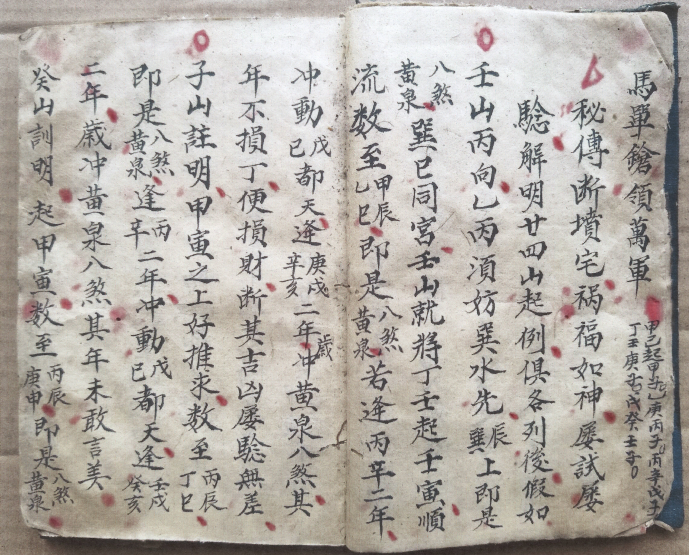 馬單鎗領萬軍
甲己起甲子乙庚丙子丙辛戊子
丁壬庚子戊癸壬子
秘傳断墳宅祸福如神屡試屡
騐解明廿四山起例俱各列後假如
壬山丙向乙丙湏妨巽水先辰巽上即是
八煞黄泉巽巳同宮壬山就將丁壬起壬寅順
流数至甲辰乙巳即是八煞黄泉若逢丙辛二年
冲動戊巳都天逢庚戌辛亥二年歲冲黄泉八煞其
年不損丁便損財断其吉凶屡騐無差
子山註明甲寅之上好推求数至丙辰丁巳
即是八煞黄泉逢丙辛二年冲動戊巳都天逢壬戌癸亥
二年歲冲黄泉八煞其年未敢言美
癸山訓明起甲寅数至丙辰庚申即是八煞黄泉